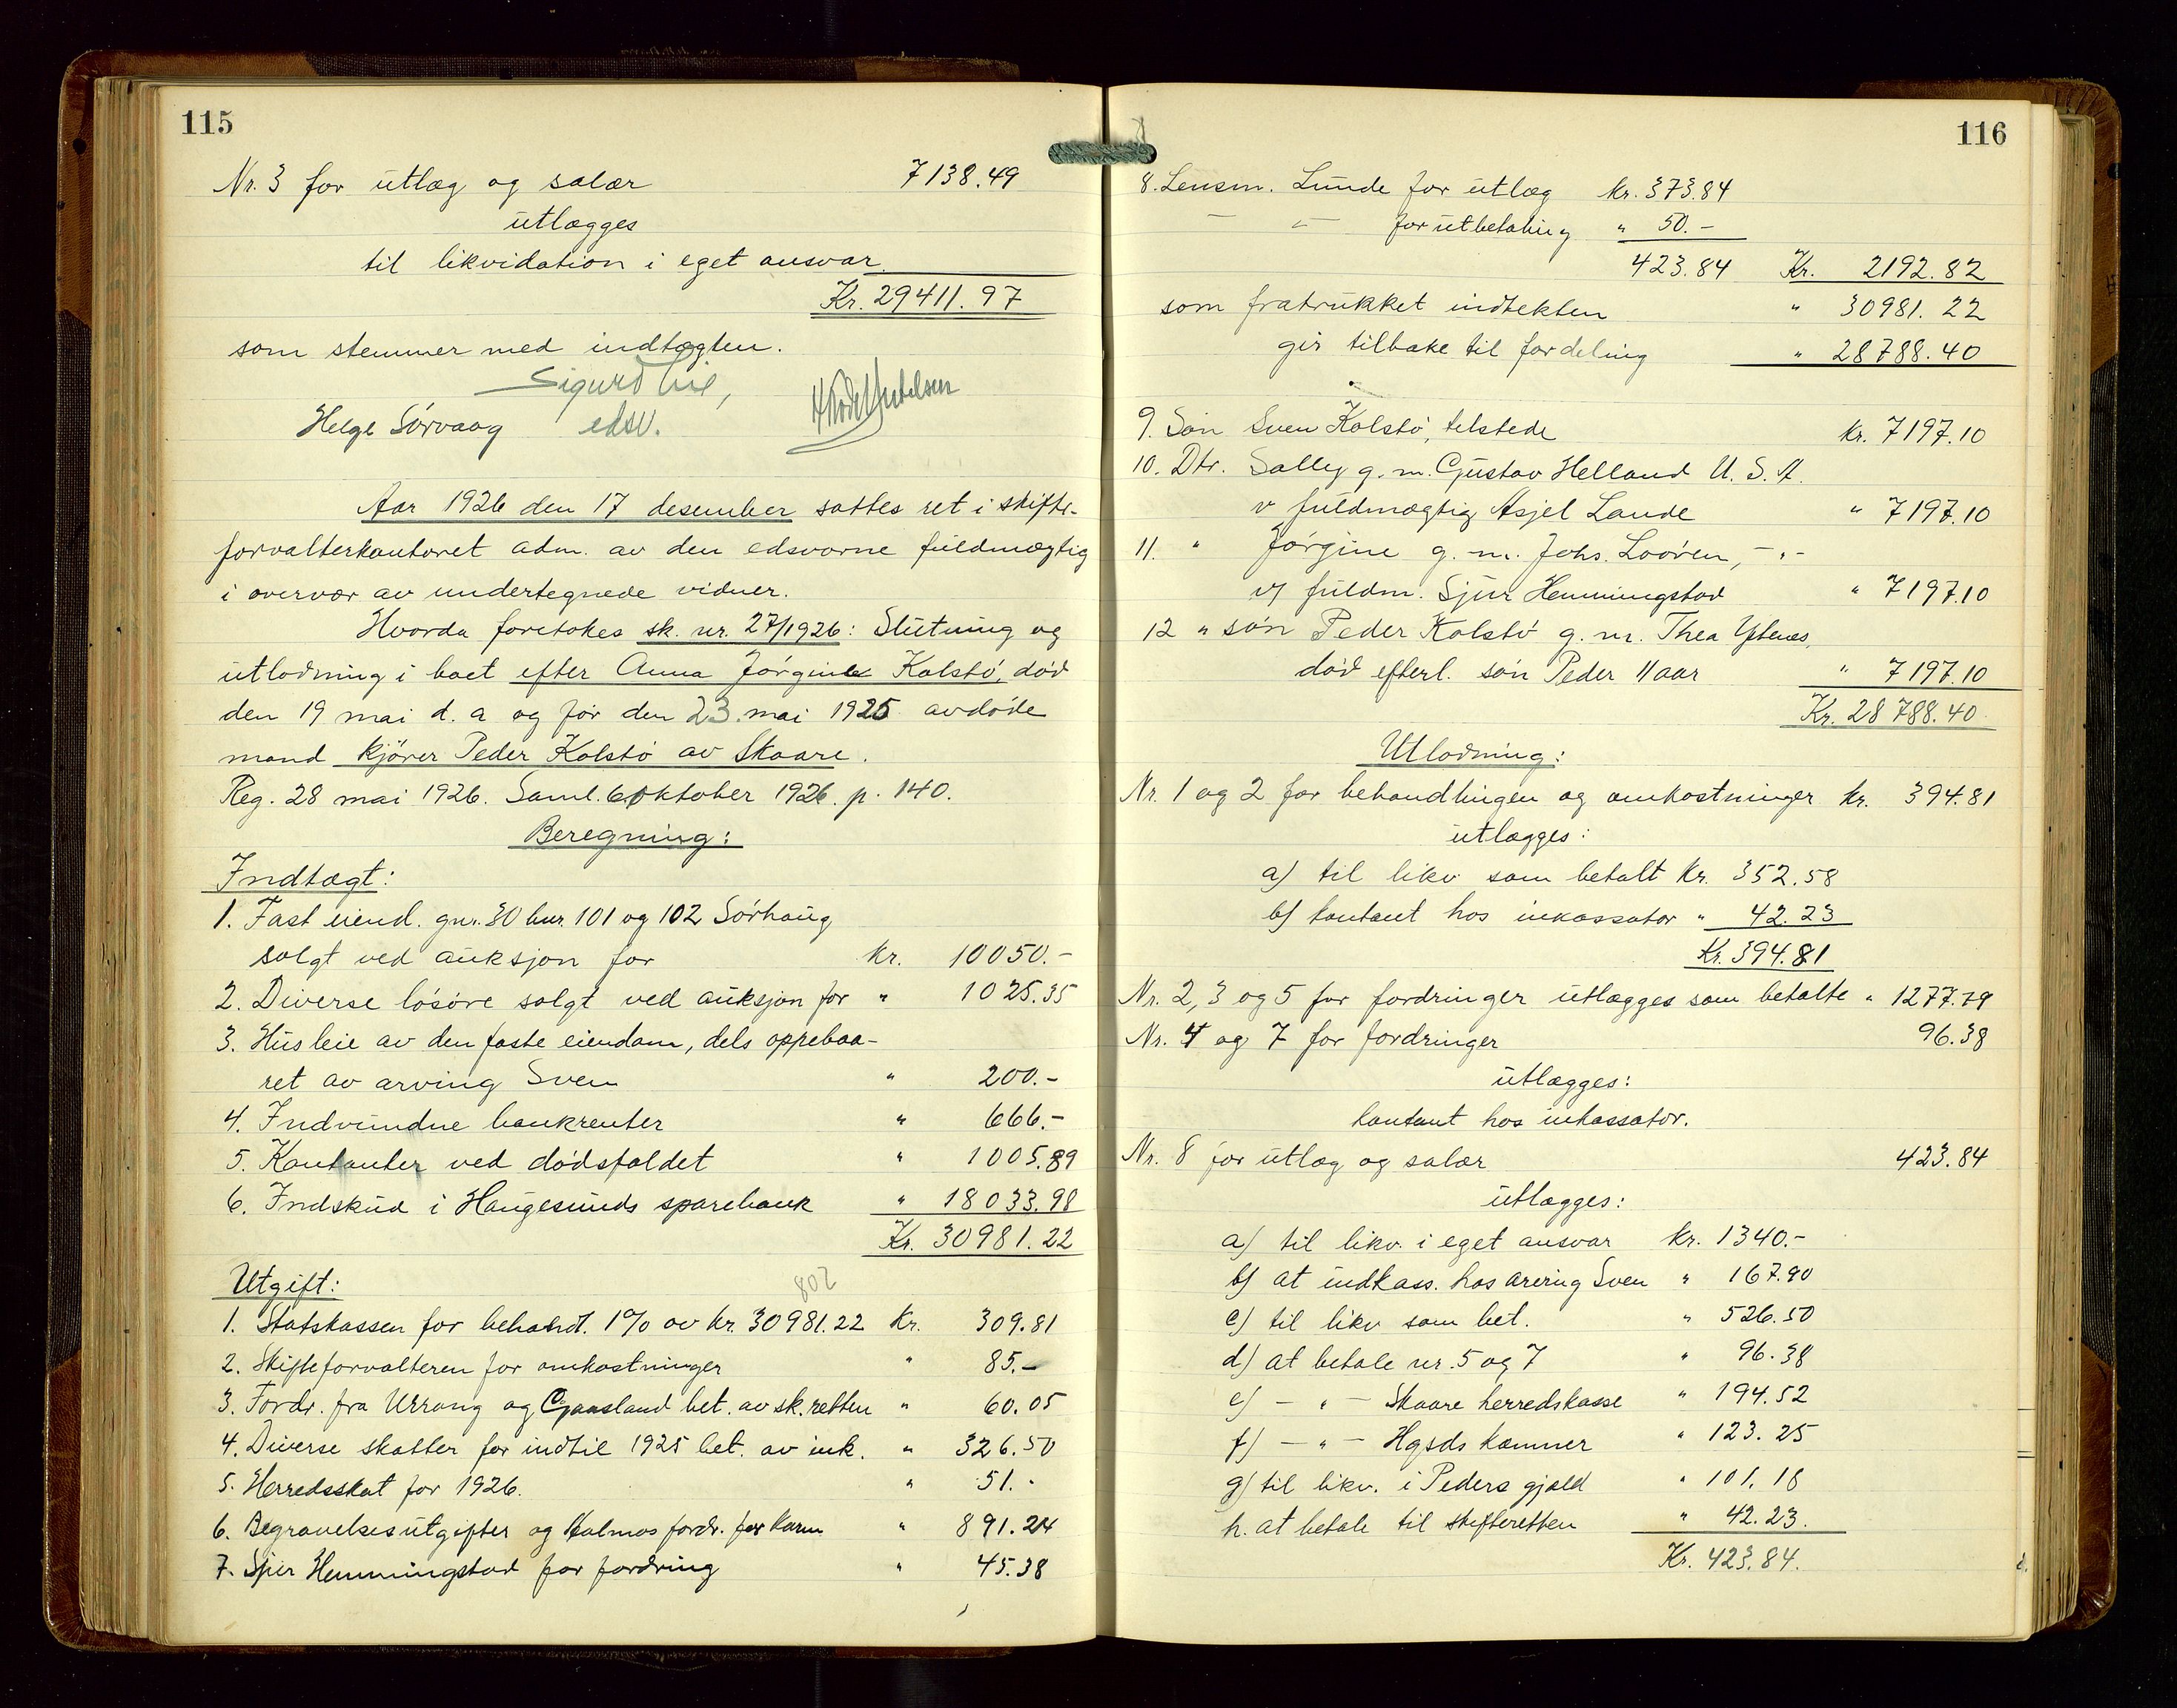 115
Nr. 3 for utlæg og salær 7138.49
utlægges
til likvidation i eget ansvar.
Kr. 29411.97
som stemmer med indtægten.
Sigurd
Helge Sörvaag edsv.
Aar 1926 den 17 desember sattes ret i skifte-
forvalterkontoret adm. av den edsvorne fuldmægtig
i overvær av undertegnede vidner.
Hvorda foretokes sk. nr. 27/1926: Slutning og
utlodning i boet efter Anna Jörgine Kolstö, död
den 19 mai d. a og för den 23. mai 1925 avdöde
mand kjörer Peder Kolstö av Skaare.
Reg. 28 mai 1926. Saml. 6 oktober 1926. p. 140.
Beregning:
Indtægt:
1. Fast eiend. gnr. 30 bnr. 101 og 102 Sörhaug
solgt ved auksjon for kr. 10050.-
2. Diverse lösöre solgt ved auksjon for " 1025.35
3. Husleie av den faste eiendom, dels oppebaa-
ret av arving Sven " 200.-
4. Indvundne bankrenter " 666.-
5. Kontanter ved dödsfaldet " 1005.89
6. Indskud i Haugesunds sparebank " 18033.98
Kr. 30981.22
802
Utgift:
1. Statskassen for behandl. 1% av kr. 30981.22 Kr. 309.81
2. Skifteforvalteren for omkostninger " 85.-
3. Fordr. fra Urrang og Gaasland bet. av sk.retten " 60.05
4. Diverse skatter for indtil 1925 bet. av ink. " 326.50
5. Herredsskat for 1926. " 51.-
6. Begravelsesutgifter og Halmos fordr. for korn " 891.24
7. Sjur Hemmingstad for fordring " 45.38
116
8. Lensm. Lunde for utlæg kr. 373.84
— " — for utbetaling " 50.-
423.84 Kr. 2192.82
som fratrukket indtekten " 30981.22
gir tilbake til fordeling " 28788.40
9. Sön Sven Kolstö, telstede kr. 7197.10
10. Dtr. Sally g. m. Gustav Helland U. S. A.
v fuldmægtig Asjel Lande " 7197.10
11. " Jörgine g. m. Johs. Looren, -"-
v/ fuldm. Sjur Hemmingstad " 7197.10
12 " sön Peder Kolstö g. m. Thea
död efterl. sön Peder 11 aar " 7197.10
Kr. 28788.40
Utlodning:
Nr. 1 og 2 for behandlingen og omkostninger kr. 394.81
utlægges:
a) til likv som betalt kr. 352.58
b) kontant hos inkassator " 42.23
Kr. 394.81
Nr. 2, 3 og 5 for fordringer utlægges som betalte " 1277.79
Nr. 4 og 7 for fordringer 96.38
utlægges:
kontant hos inkassator.
Nr. 8 for utlæg og salær 423.84
utlægges:
a) til likv. i eget ansvar kr. 1340.-
b) at indkass. hos arving Sven " 167.90
c) til likv som bet. " 526.50
d) at betale nr. 5 og 7 " 96.38
e) — " — Skaare herredskasse " 194.52
f) — " — Hgsds kæmner " 123.25
g) til likv. i Peders gjæld " 101.18
h. at betale til skifteretten " 42.23.
Kr. 423.84.